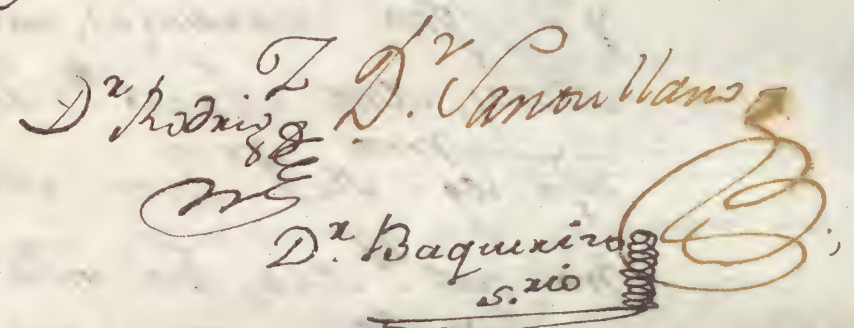 Dr Rodrigz Dr. Santullano
Dr. Baqueriza
s.rio